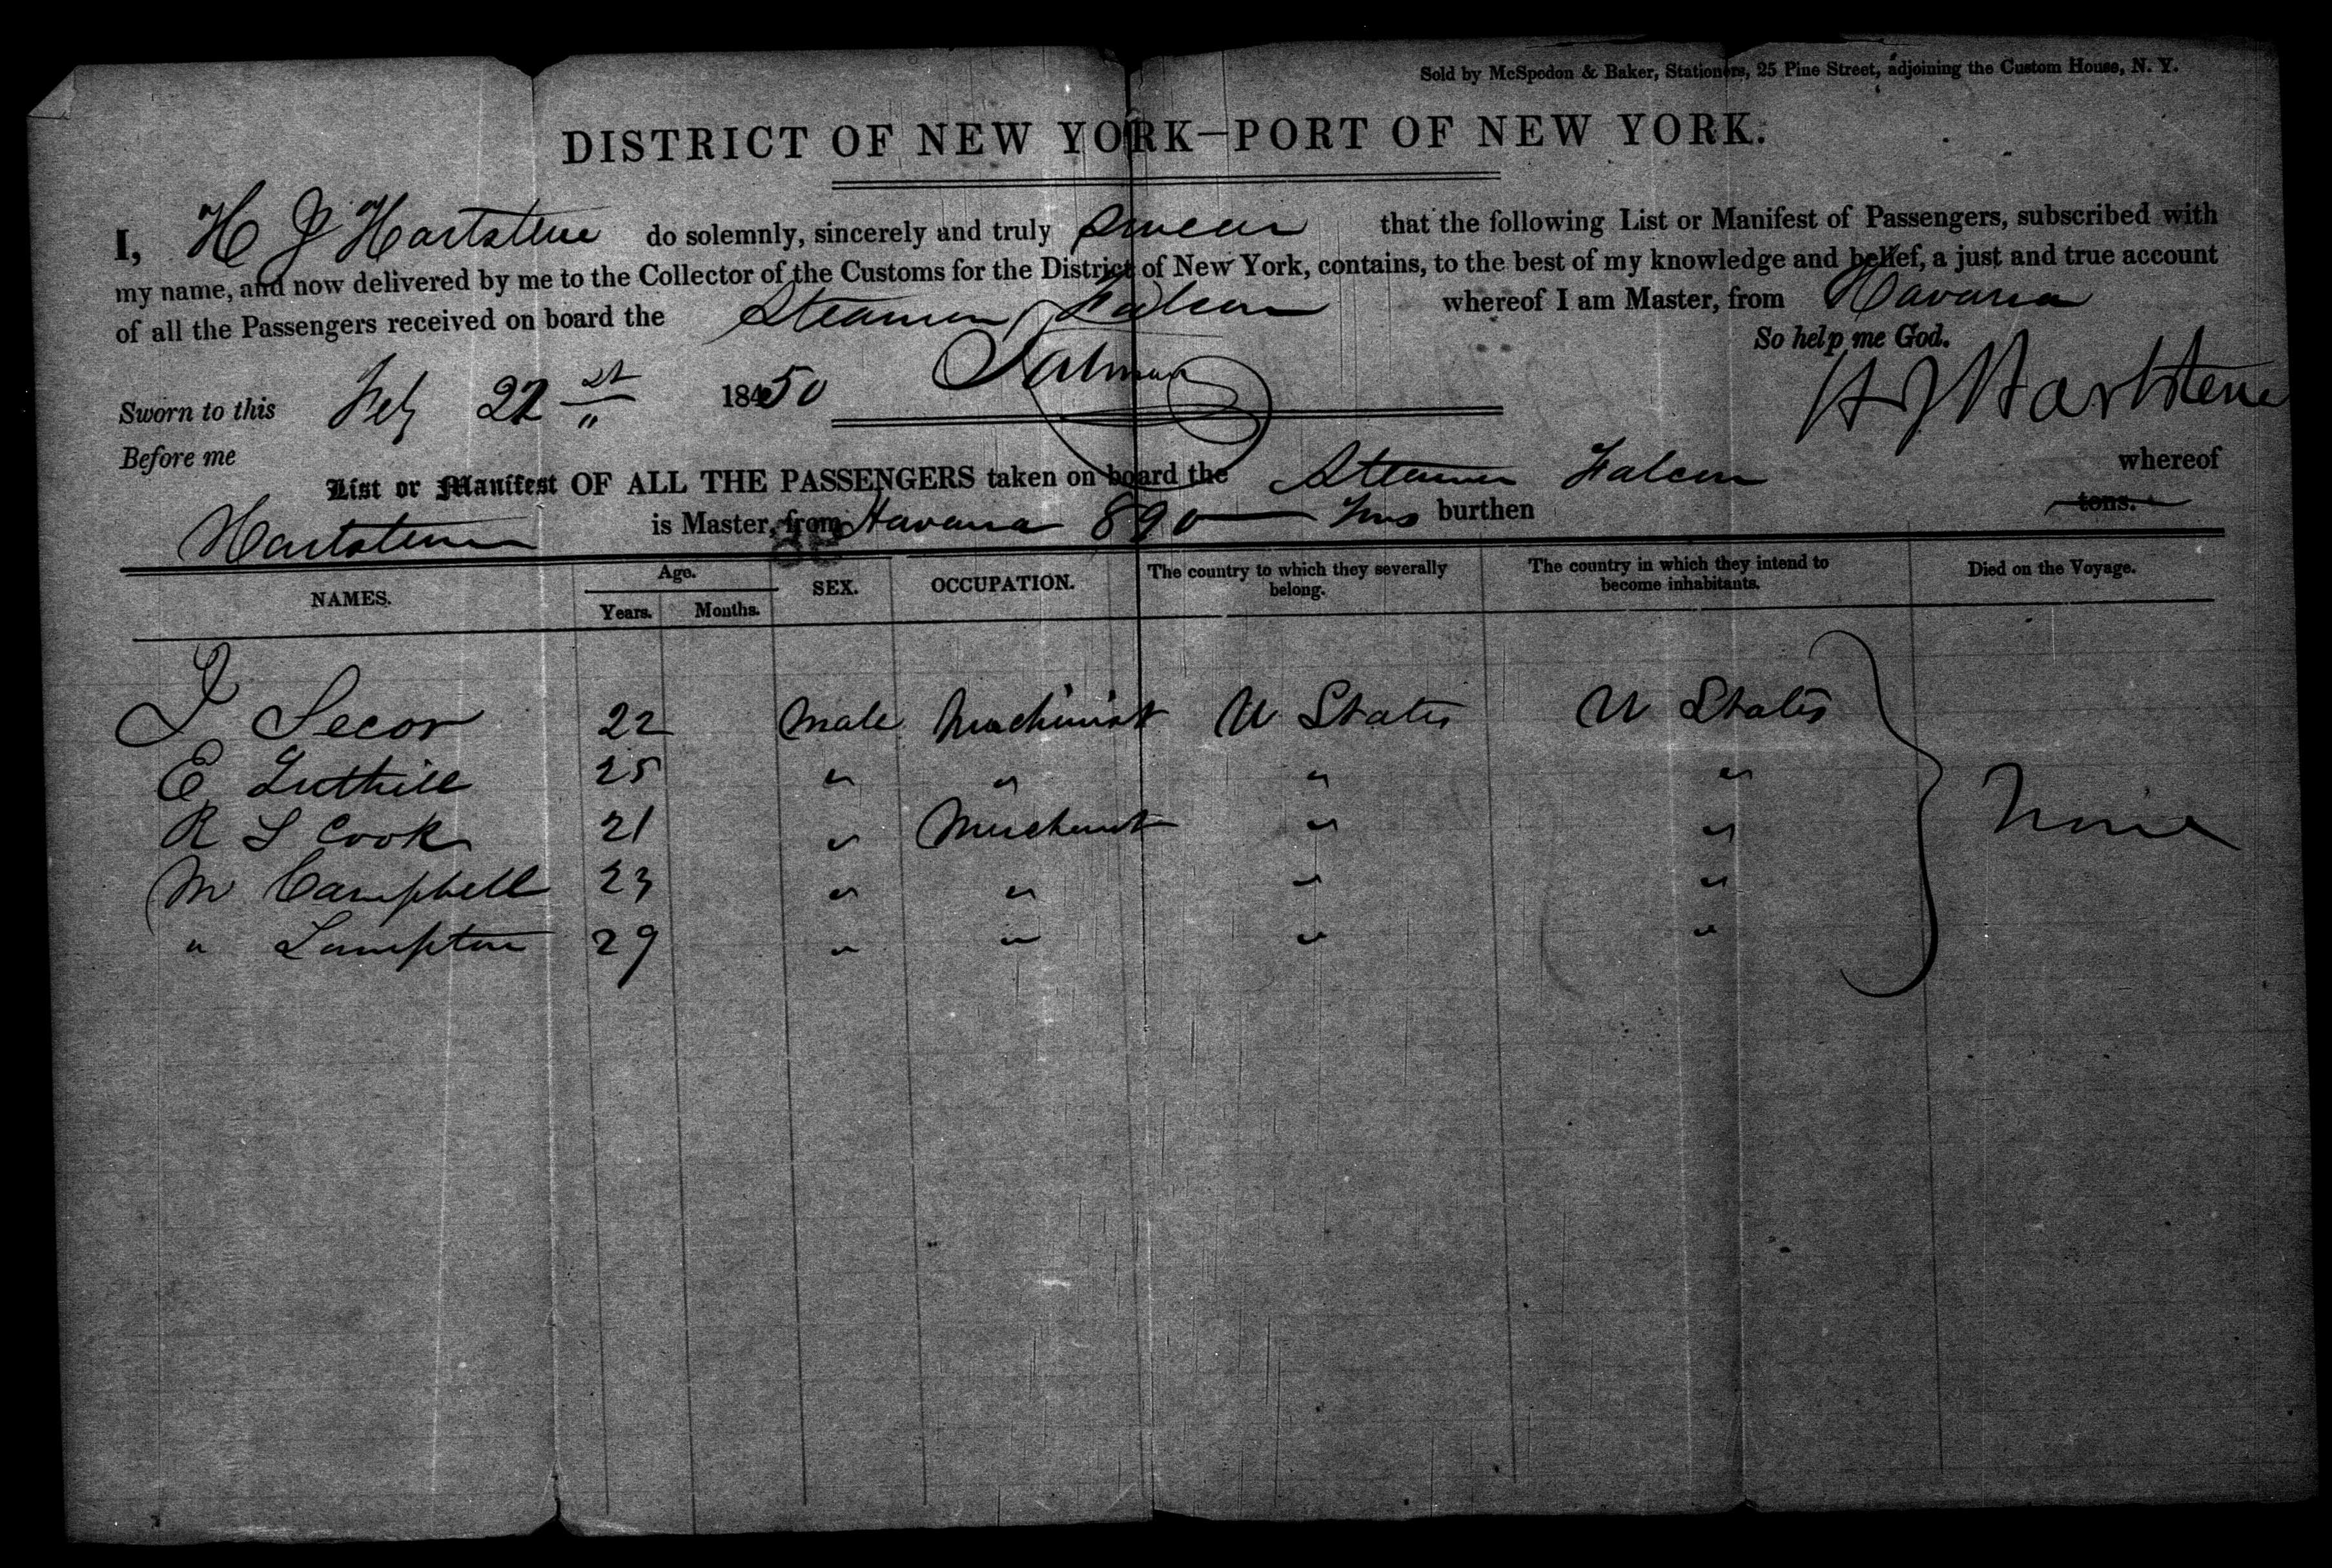 Sold by McSpedon & Baker, Stationers, 25 Pine Street, adjoining the Custom House, N. Y.
DISTRICT OF NEW YORK—PORT OF NEW YORK.
I, H J Hartstene do solemnly, sincerely and truly swear that the following List or Manifest of Passengers, subscribed with
my name, and now delivered by me to the Collector of the Customs for the District of New York, contains, to the best of my knowledge and belief, a just and true account
of all the Passengers received on board the Steamer Falcon whereof I am Master, from Havana
So help me God.
Sworn to this Feby 22 st 1850 H J Hartstene
Before me
List or Manifest OF ALL THE PASSENGERS taken on board the Steamer Falcon whereof
Hartstene is Master, from Havana 890 Tons burthen tons.
NAMES. Age. Years. Months. SEX. OCCUPATION. The country to which they severally belong. The country in which they intend to become inhabitants. Died on the Voyage.
J Secor 22 Male Machinist U States U States
E Tuthill 25 " " " "
R S Cook 21 " Merchant " " None
M Campbell 23 " " " "
" Lampton 29 " " " "